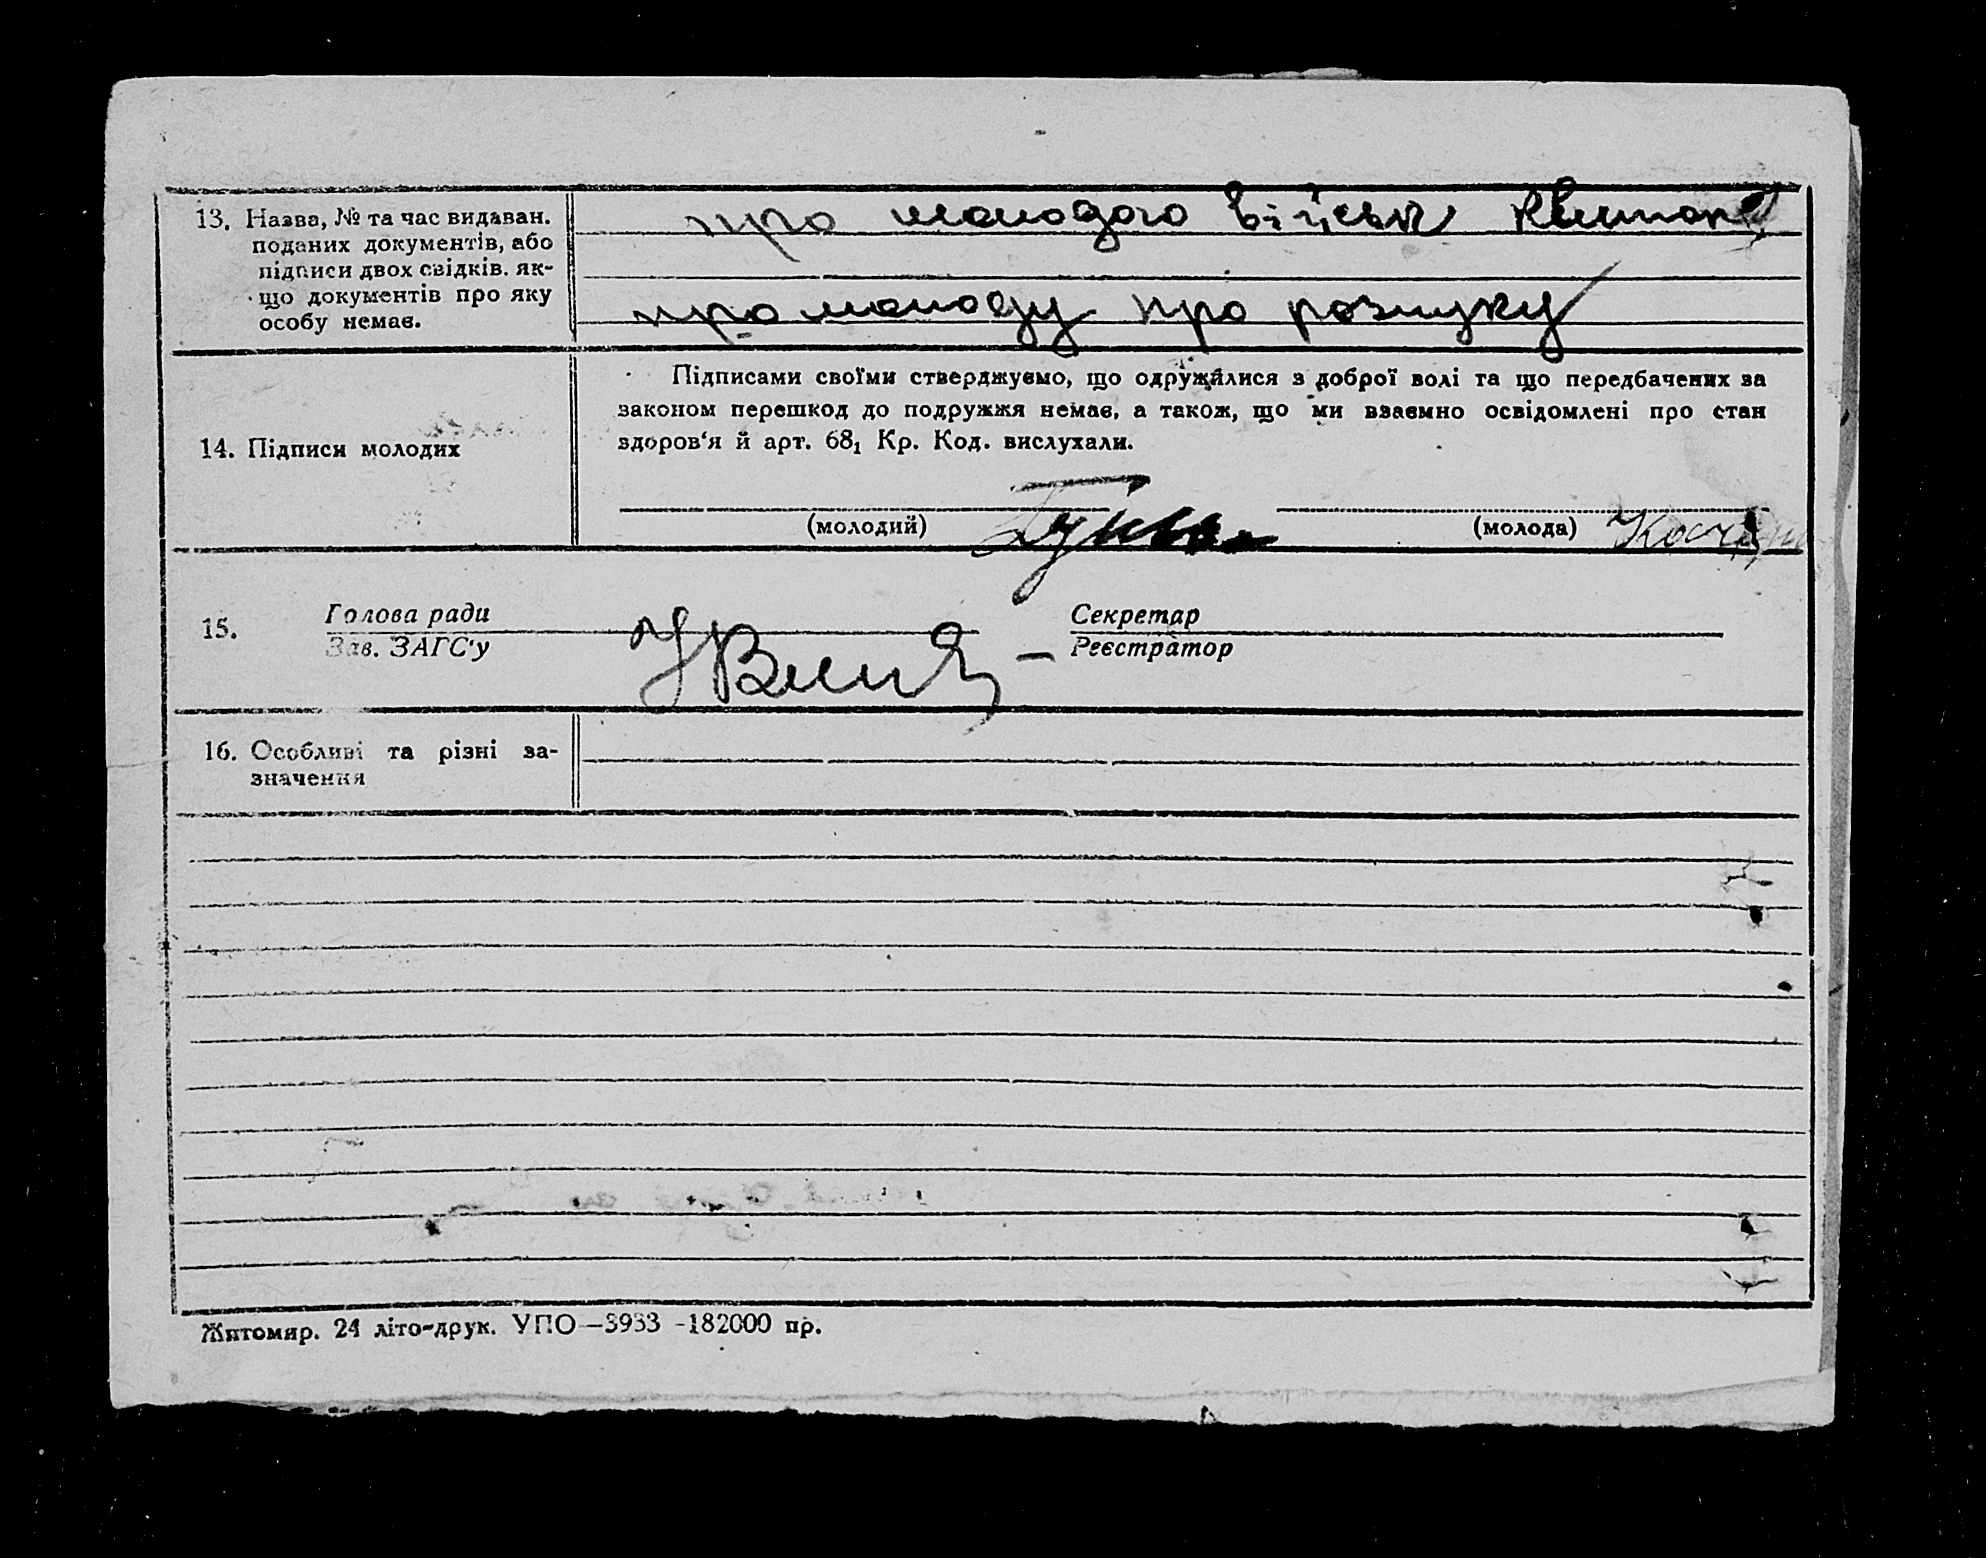 13. Назва, № та час видаван. поданих документів, або підписи двох свідків. якщо документів про яку особу немає.
про молодого військ квиток
про молоду про розлуку
14. Підписи молодих
Підписами своїми стверджуємо, що одружилися з доброї волі та що передбачених за
законом перешкод до подружжя немає, а також, що ми взаємно освідомлені про стан
здоров'я й арт. 68₁ Кр. Код. вислухали.
(молодий) (молода)
15. Голова ради Секретар
Зав. ЗАГС'у Реєстратор
16. Особливі та різні за-
значення
Житомир. 24 літо-друк. УПО—3933 -182000 пр.